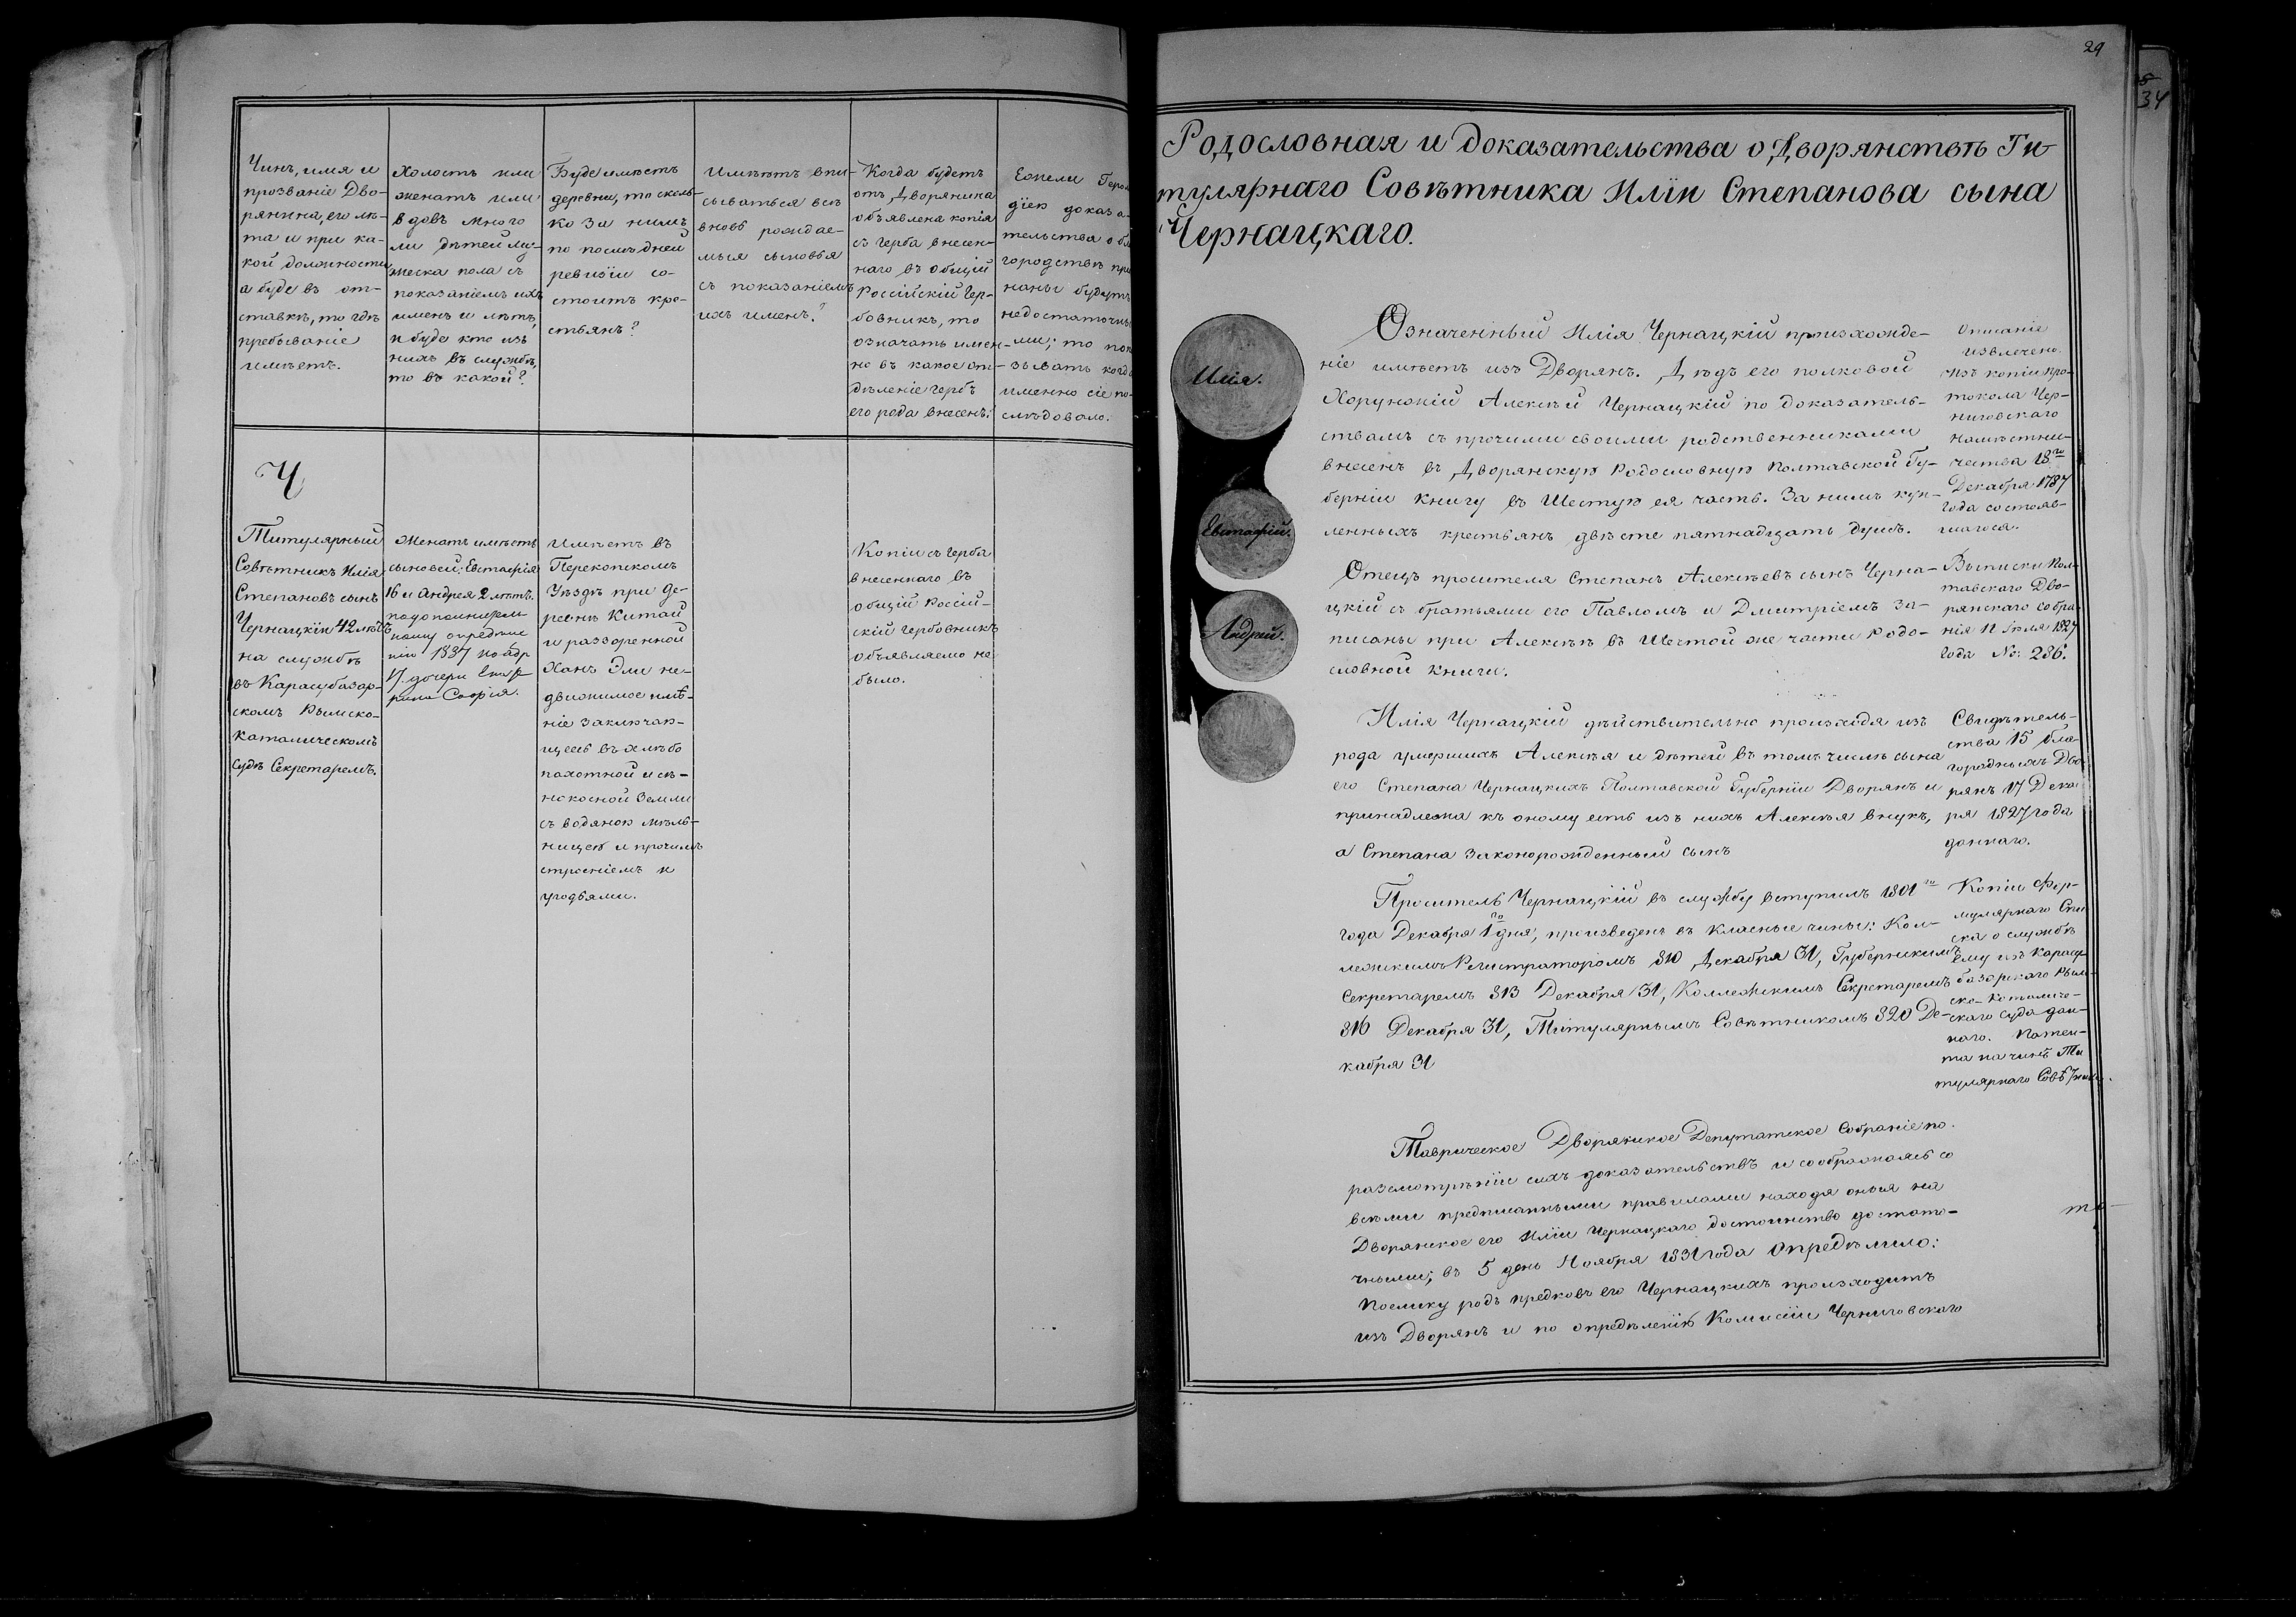 Чинъ, имя и
прозваніе Дво-
рянина, его лѣ-
та и при ка-
кой должности
а буде въ от-
ставкѣ, то гдѣ
пребываніе
имѣетъ.
Холостъ или
женатъ или
вдовъ много
ли дѣтей му-
жеска пола съ
показаніемъ ихъ
именъ и лѣтъ,
и буде кто изъ
нихъ въ службѣ,
то въ какой?
Буде имѣетъ
деревни, то сколь-
ко за нимъ
по послѣдней
ревизіи со-
стоитъ кре-
стьянъ?
Имѣютъ впи-
сываться всѣ
вновь рождае-
мыя сыновья
съ показаніемъ
ихъ именъ?
Когда будетъ
отъ Дворянина
объявлена копія
съ герба внесен-
наго въ общій
Россійскій Гер-
бовникъ, то
означать имен-
но въ какое от-
дѣленіе гербъ
его рода внесенъ?
Ежели Герол
діею доказа-
тельства о бла
городствѣ при
наны будутъ
недостаточны
ми; то пока
зывать когда
именно сіе по-
слѣдовало.
Ч
Титулярный
Совѣтникъ Илія
Степановъ сынъ
Чернацкій 42 лѣтъ
на службѣ
въ Карасубазар-
скомъ Римско-
католическомъ
судѣ Секретаремъ.
Женатъ имѣетъ
сыновей: Евстафія
16 и Андрея 2 лѣтъ.
по дополнитель
ному опредѣле
нію 1837 ноабр
17. дочери Екате
рина София.
Имѣетъ въ
Перекопскомъ
Уѣздѣ при де-
ревнѣ Китай
и разворенной
Ханъ Эли не-
движимое имѣ-
ніе заключаю-
щееся въ хлѣбо
пахотной и сѣ-
нокосной земли
съ водяною мель-
ницею и прочимъ
строеніемъ и
угодьями.
Копіи съ герба
внесеннаго въ
общій Россій-
скій гербовникъ
объявляемо не
было.
29
34
Родословная и доказательства о Дворянствѣ Ти-
тулярнаго Совѣтника Иліи Степанова сына
Чернацкаго.
Илія.
Евстафій.
Андрей.
Означенный Илія Чернацкій произхожде-
ніе имѣетъ изъ Дворянъ. Дѣдъ его полковой
Хорунжій Алексѣй Чернацкій по доказатель-
ствамъ съ прочими своими родственниками
внесенъ въ Дворянскую родословную Полтавской Гу-
берніи книгу въ Шестую ея часть. За нимъ куп-
ленныхъ крестьянъ двѣсте пятнадцать душъ.
Описаніе
извлечено
изъ копіи про-
токола Чер-
ниговскаго
намѣстни-
чества 18го
Декабря 1787
года состояв-
шагося.
Отецъ просителя Степанъ Алексѣевъ сынъ Черна-
цкій съ братьями его Павломъ и Дмитріемъ за-
писаны при Алексѣѣ въ Шестой же части родо-
словной книги.
Выписки Пол-
тавскаго Дво-
рянскаго собра-
нія 11 Іюля 1827
года No: 286.
Илія Чернацкій дѣйствительно произходя изъ
рода умершихъ Алексѣя и дѣтей въ томъ числѣ сына
его Степана Чернацкихъ Полтавской Губерніи Дворянъ и
принадлежа къ оному есть изъ нихъ Алексѣя внукъ,
а Степана законорожденный сынъ
Свидѣтель-
ства 15 бла-
городныхъ Дво-
рянъ 17 Декаб
ря 1827 года
даннаго.
Проситель Чернацкій въ службу вступилъ 1801го
года Декабря 1го дня, произведенъ въ класные чины: Кол-
лежскимъ Регистраторомъ 810 Декабря 31, Губернскимъ
Секретаремъ 813 Декабря 31, Коллежскимъ Секретаремъ
816 Декабря 31, Титулярнымъ Совѣтникомъ 820 Де-
кабря 31
Копіи фор-
мулярнаго Спи
ска о службѣ
ему изъ Карасу-
базарскаго Рим-
ско-католиче-
скаго суда дан-
наго. Патен-
та на чинъ Ти
тулярнаго Совѣтника.
Таврическое Дворянское Депутатское Собраніе по
разсмотрѣніи сихъ доказательствъ и соображаясь со
всѣми предписанными правилами находя оныя на
Дворянское его Иліи Чернацкаго достоинство достато-
чными; въ 5 день Ноября 1831 года Опредѣлило:
Поелику родъ предковъ его Чернацкихъ произходитъ
изъ Дворянъ и по опредѣленію Комисіи Черниговскаго